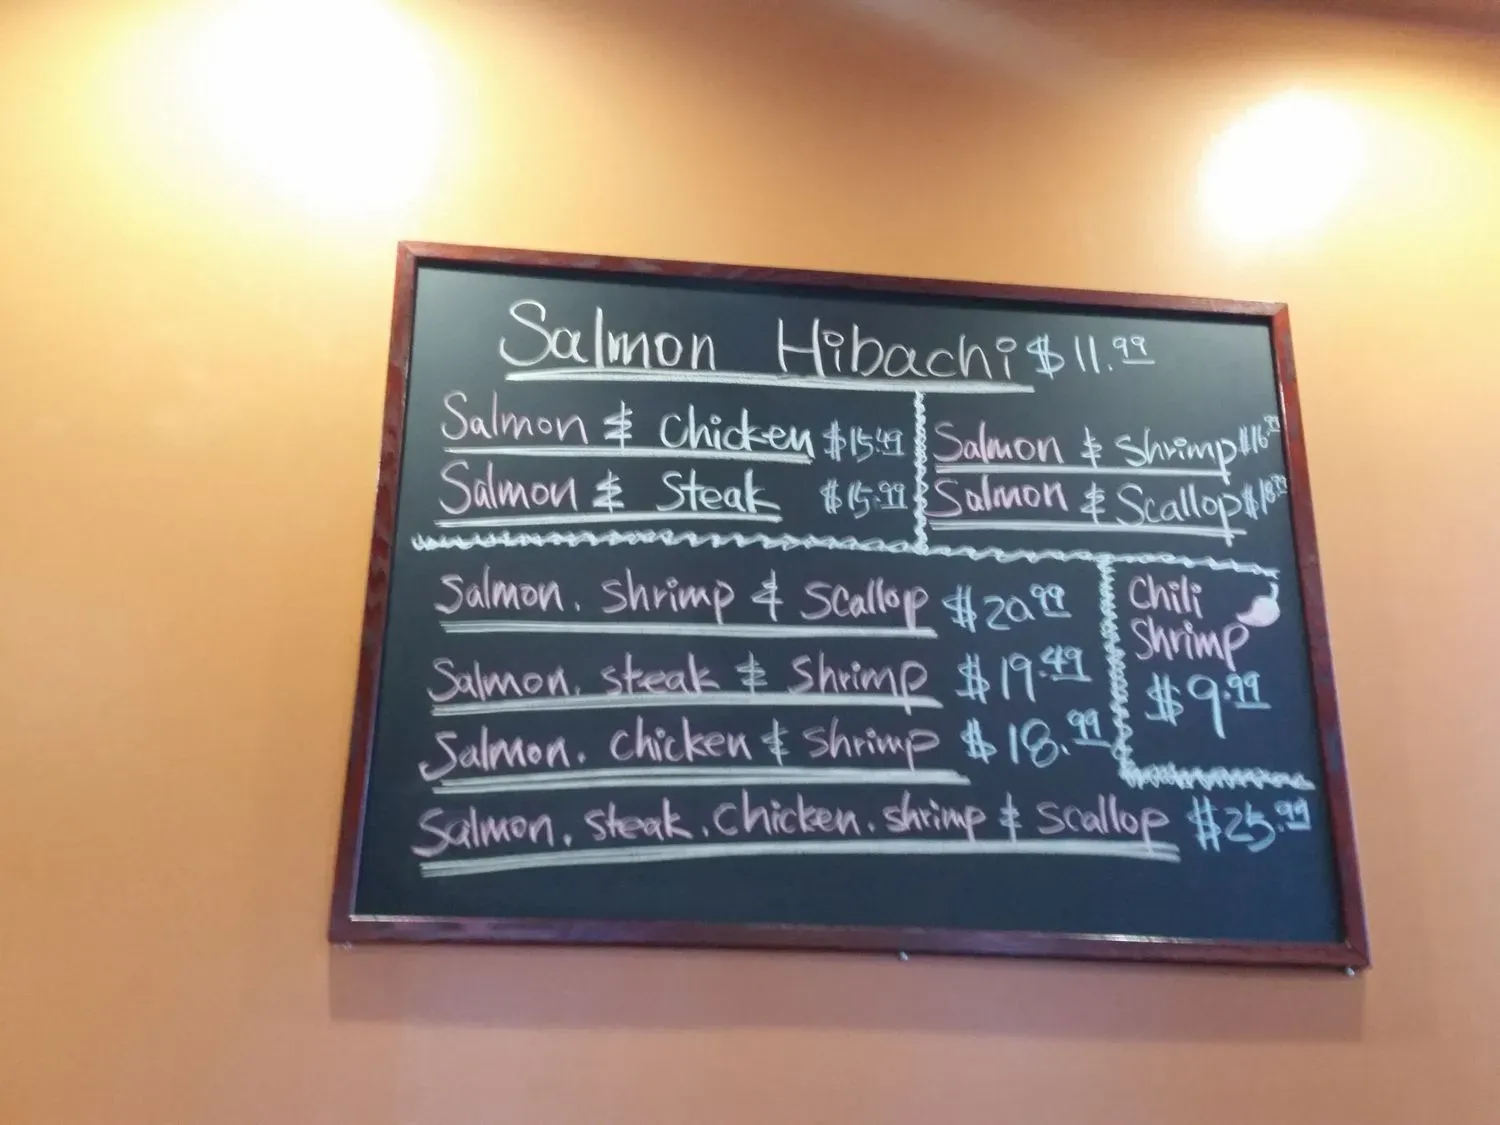 Salmon Hibachi $11.99
Salmon & Chicken $15.49
Salmon & Steak $15.99
Salmon & Shrimp $16
Salmon & Scallop $18.99
Salmon. Shrimp & Scallop $20.99
Salmon. steak & Shrimp $19.49
Salmon. Chicken & Shrimp $18.99
Salmon. Steak. Chicken. shrimp & Scallop $25.99
Chili
Shrimp
$9.99